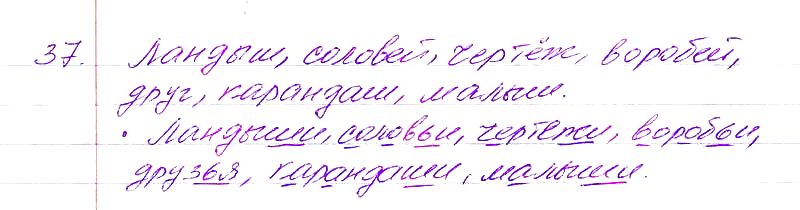 37. Ландыш, соловей, чертёж, воробей,
друг, карандаш, малыш.
• Ландыши, соловьи, чертежи, воробьи,
друзья, карандаши, малыши.